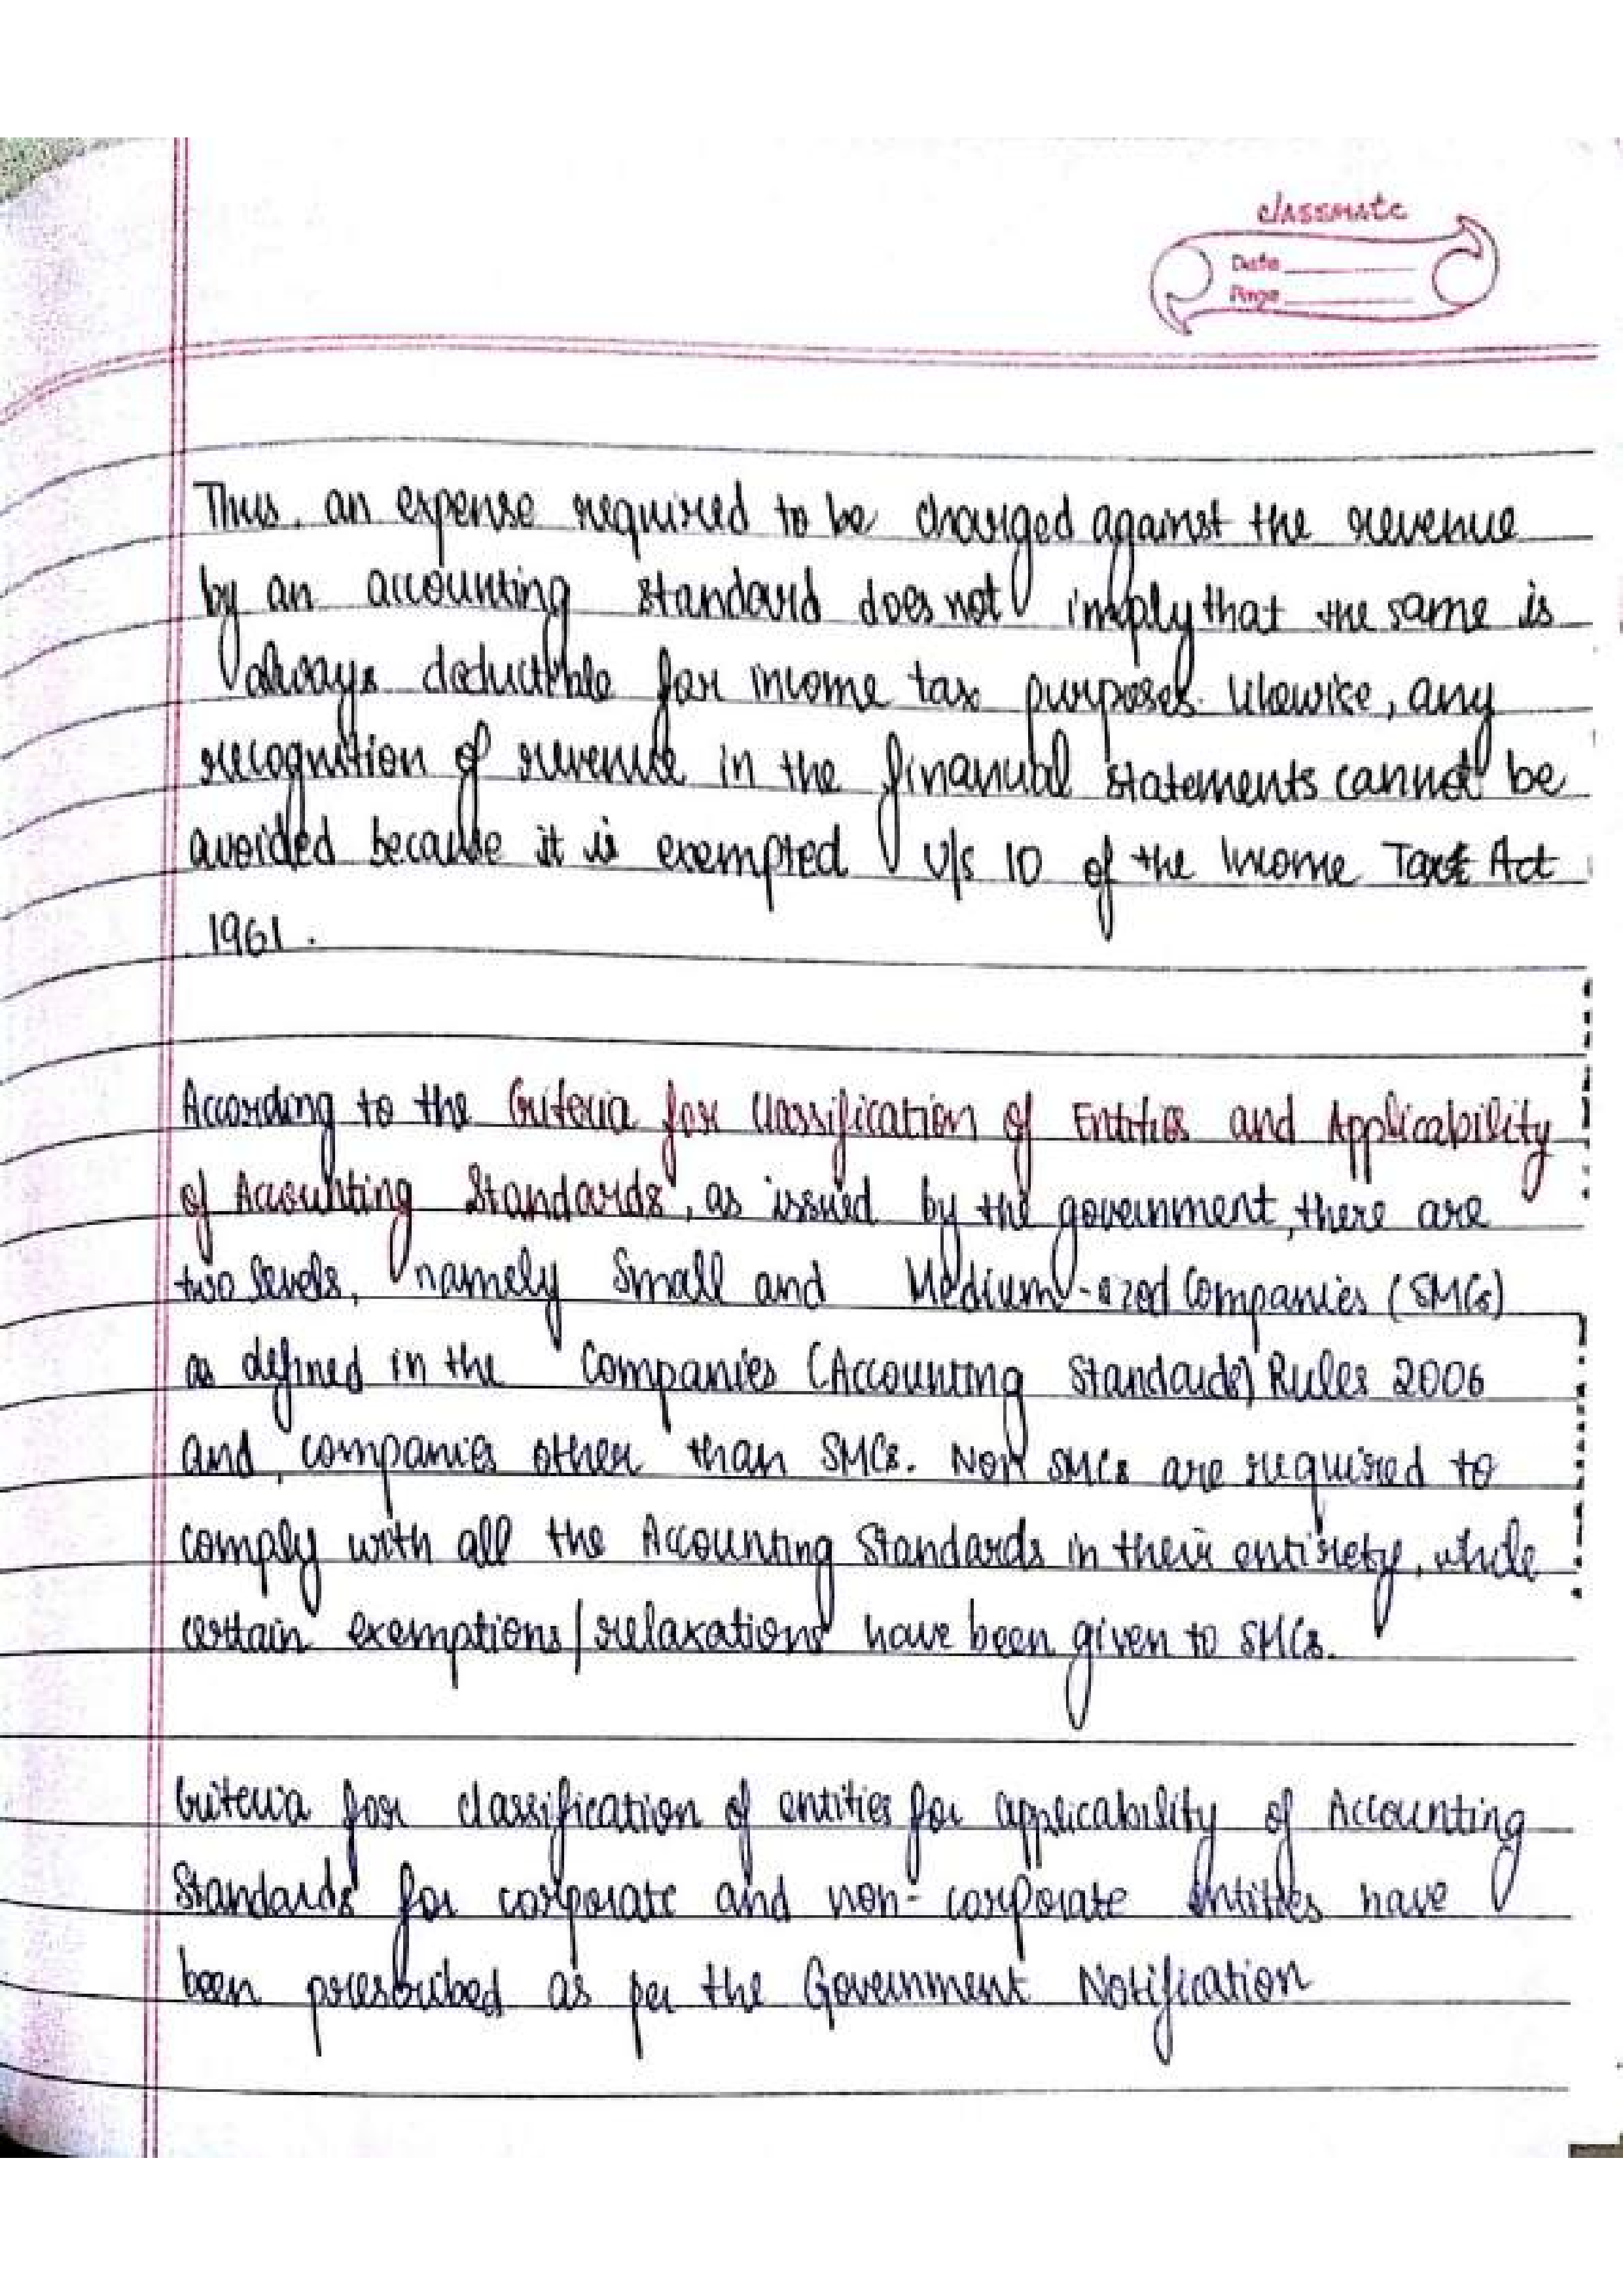 classmate
Date
Page
Thus, an expense required to be charged against the revenue
by an accounting standard does not imply that the same is
always deductible for income tax purposes. Likewise, any
recognition of revenue in the financial statements cannot be
avoided because it is exempted u/s 10 of the Income Tax Act
1961.
According to the Criteria for Classification of Entities and Applicability
of Accounting Standards, as issued by the government, there are
two levels, namely Small and Medium-sized Companies (SMCs)
as defined in the Companies (Accounting Standards) Rules 2006
and, companies other than SMCs. Non SMCs are required to
comply with all the Accounting Standards in their entirety, while
certain exemptions/relaxations have been given to SMCs.
Criteria for classification of entities for applicability of Accounting
Standards for corporate and non-corporate entities have
been prescribed as per the Government Notification